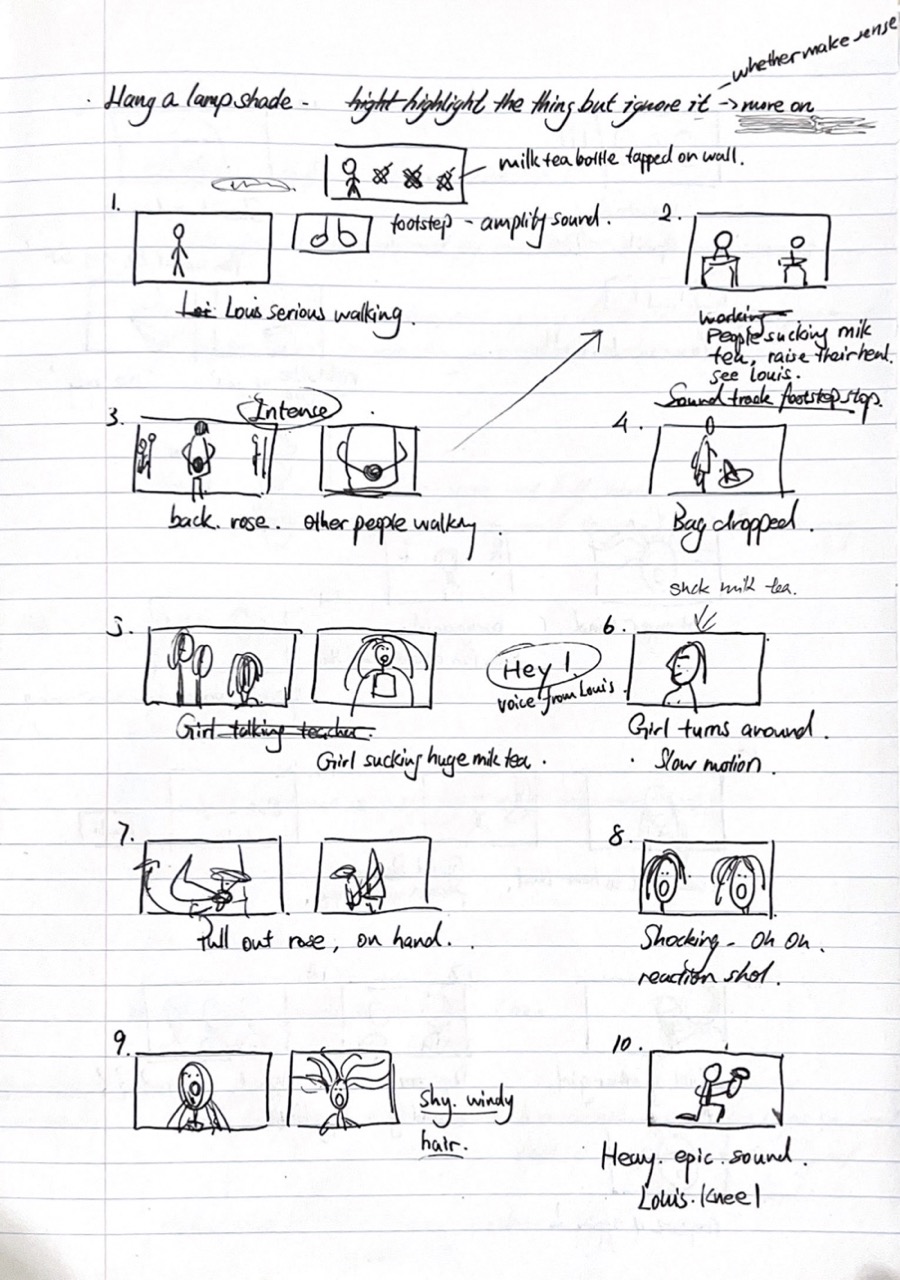 whether make sense
Hang a lamp shade - hight highlight the thing but ignore it → more on
milk tea bottle tapped on wall.
1.
footstep - amplify sound.
2.
Loi Louis serious walking.
working
People sucking milk
tea, raise their head.
see Louis.
Sound track footstep stop.
3.
Intense
4.
back. rose. other people walking.
Bag dropped.
suck milk tea.
5.
Hey!
voice from Louis.
6.
Girl talking teacher.
Girl sucking huge milk tea.
Girl turns around.
Slow motion.
7.
8.
Pull out rose, on hand.
Shocking - Oh Oh.
reaction shot.
9.
10.
Shy. windy
hair.
Heavy. epic. sound.
Louis. Kneel